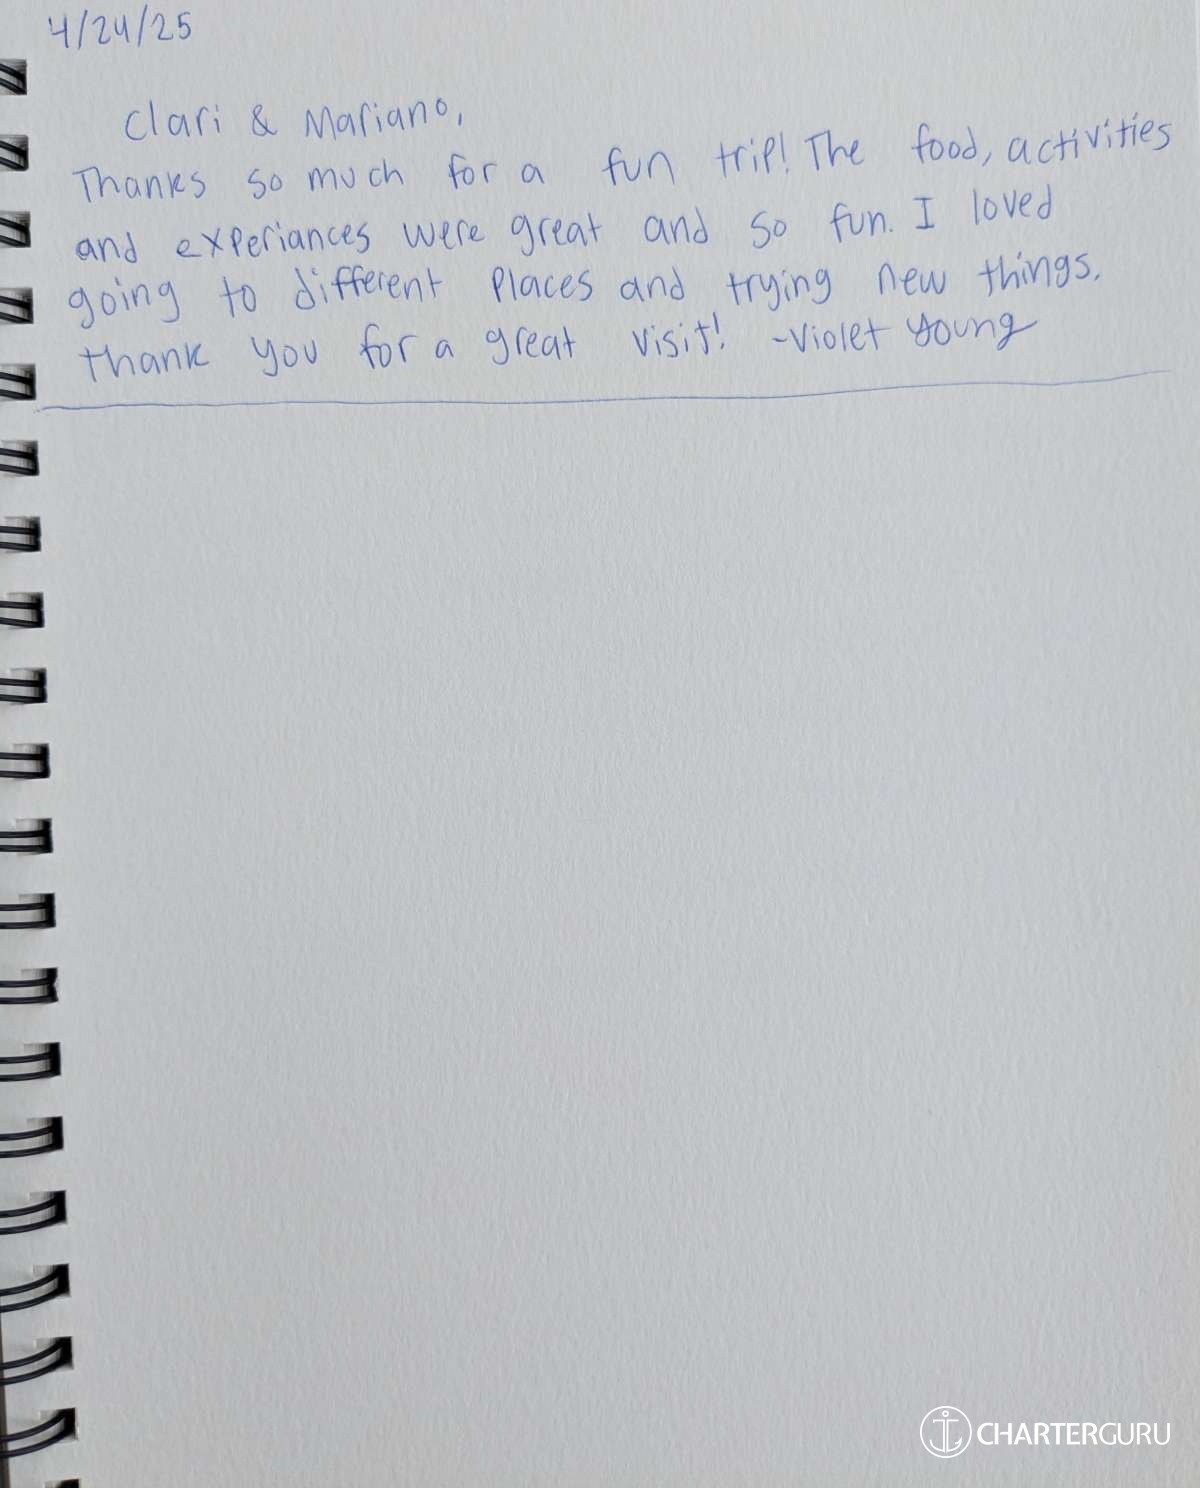 4/24/25
Clari & Mariano,
Thanks so much for a fun trip! The food, activities
and experiances were great and so fun. I loved
going to different places and trying new things.
thank you for a great visit! -Violet Young
CHARTERGURU